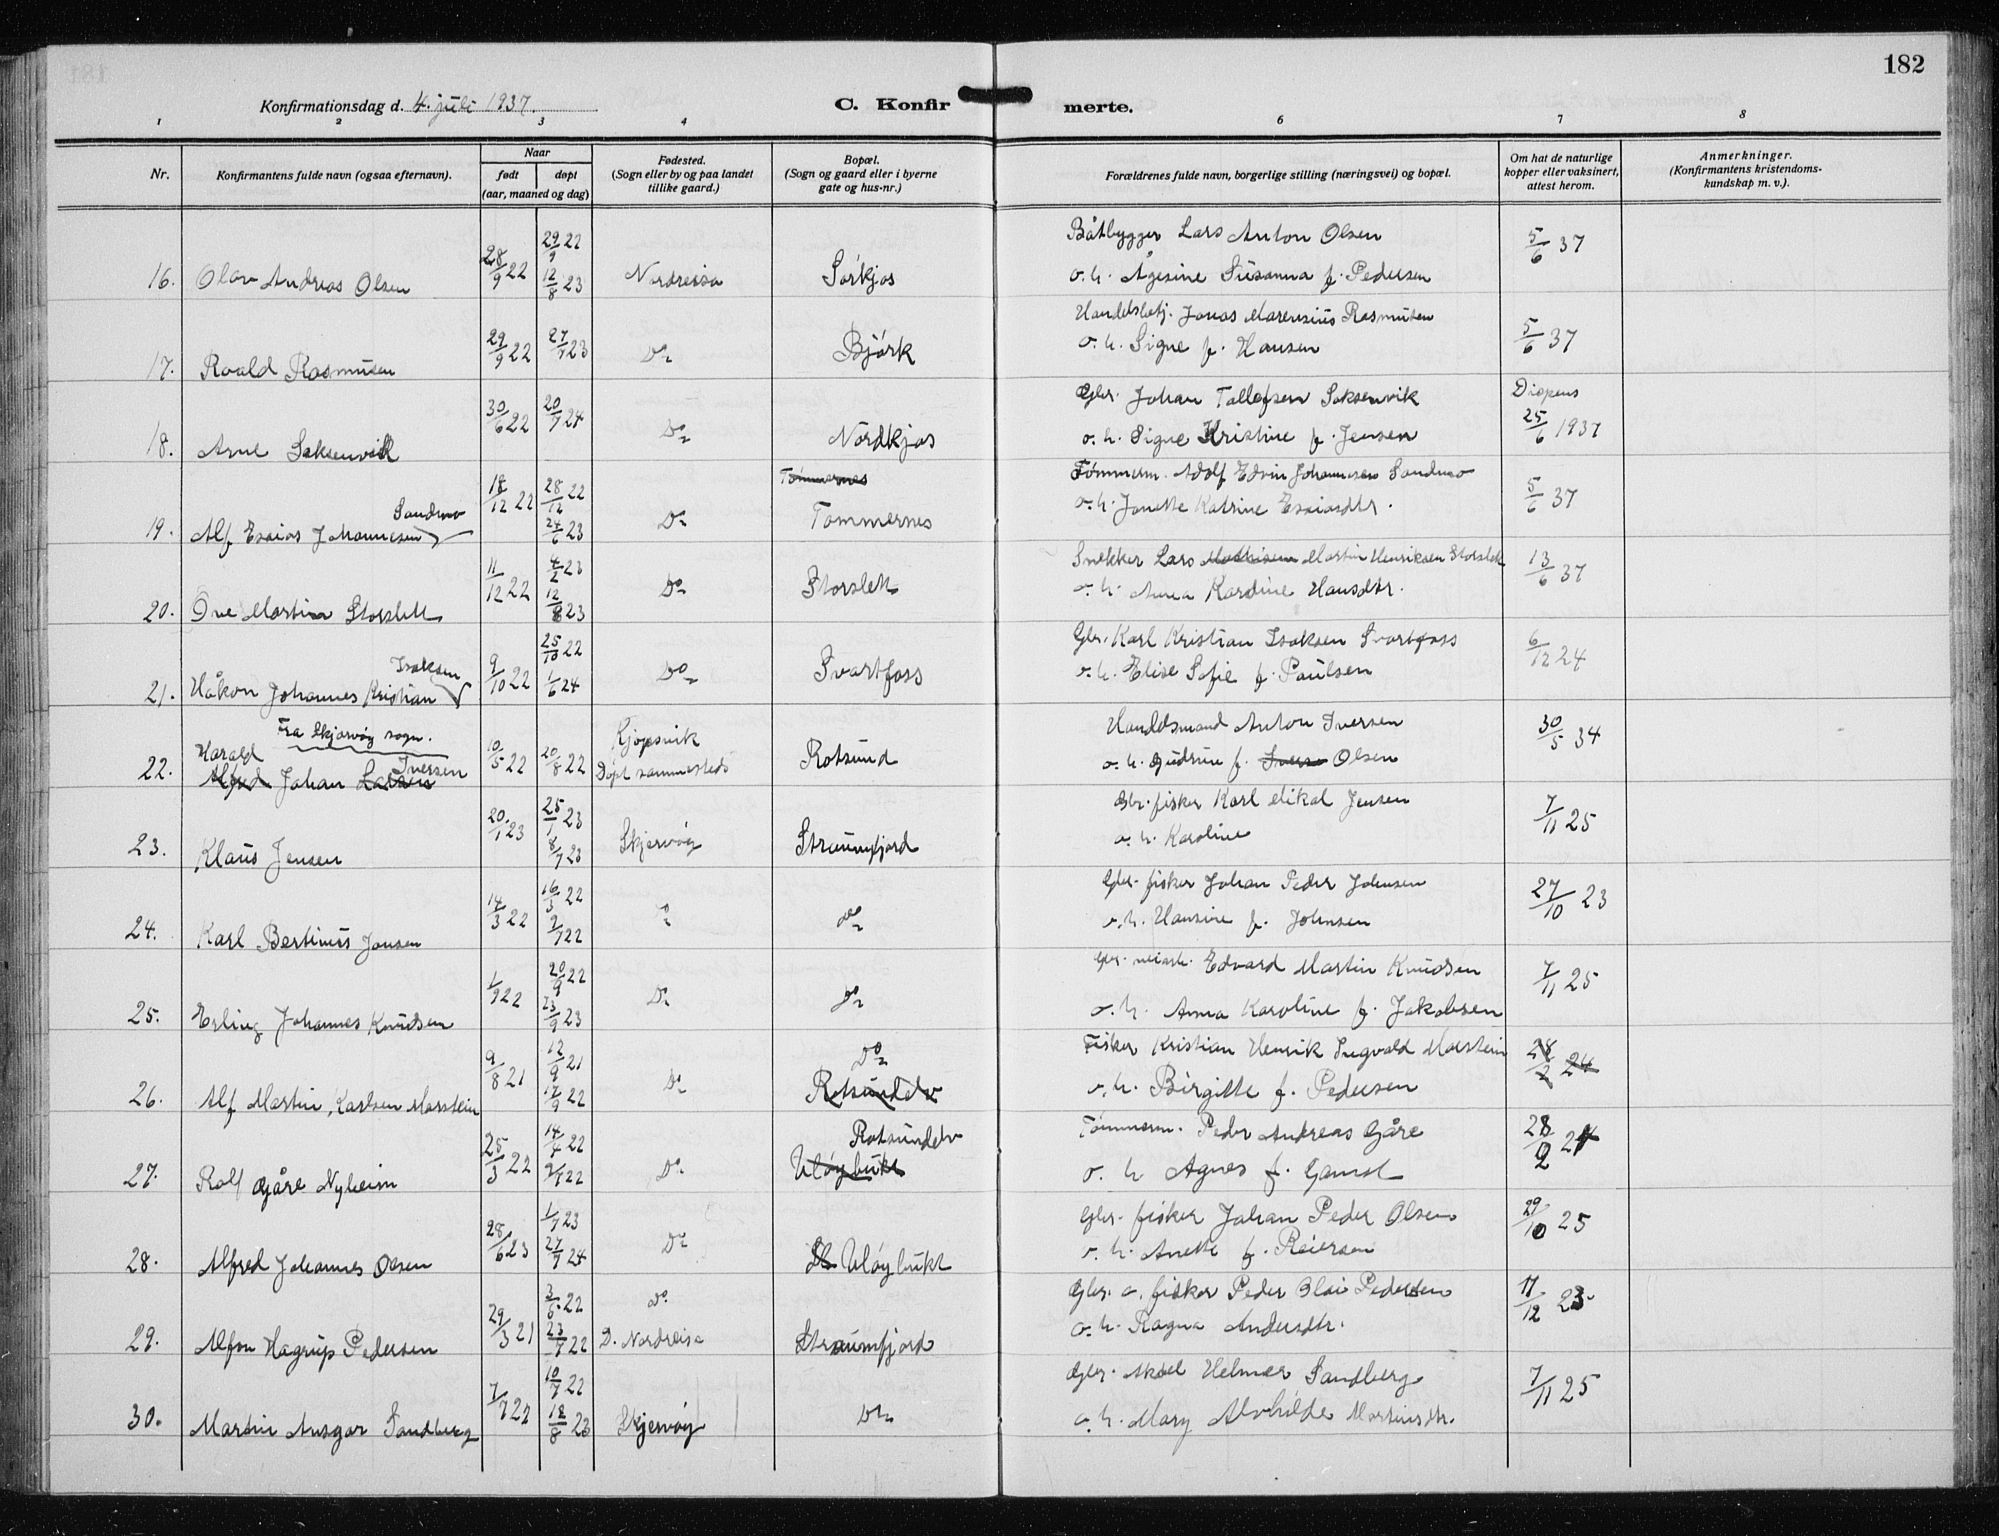 182
Konfirmationsdag d. 4. juli 1937.
C. Konfirmerte.
1 2 3 4 6 7 8
Nr.
Konfirmantens fulde navn (ogsaa efternavn).
Naar
født
døpt
(aar, maaned og dag)
Fødested.
(Sogn eller by og paa landet
tillike gaard.)
Bopæl.
(Sogn og gaard eller i byerne
gate og hus-nr.)
Forældrenes fulde navn, borgerlige stilling (næringsvei) og bopæl.
Om hat de naturlige
kopper eller vaksinert,
attest herom.
Anmerkninger.
(Konfirmantens kristendoms-
kundskap m. v.).
16. Olav Andreas Olsen 28/9 22 29/9 22 12/8 23 Nordreisa Sørkjos
Båtbygger Lars Anton Olsen 5/6 37
o. h. Ågesine Susanna f. Pedersen
17. Roald Rasmusen 29/9 22 27/7 23 Do Bjørk
Handelsbetj. Jonas Marensius Rasmusen 5/6 37
o. h. Signe f. Hansen
18. Arne Saksenvik 30/6 22 20/7 24 Do Nordkjos
Gbr. Johan Tollefsen Saksenvik Dispens
o. h. Signe Kristine f. Jensen 25/6 1937
19. Alf Esaias Johannesen Sandmo 18/12 22 28/12 22 24/6 23 Do Tømmernes
Tømmernes
Tømmerm. Adolf Edvin Johannesen Sandmo 5/6 37
o. h. Jonette Katrine Esaiasdtr.
20. Ove Martin Storslett 11/12 22 4/2 23 12/8 23 Do Storslett
Snekker Lars Mathisen Martin Henriksen Storslett 13/6 37
o. h. Anna Kardine Hansdtr.
21. Håkon Johannes Kristian Isaksen 9/10 22 25/10 22 1/6 24 Do Svartfoss
Gbr. Karl Kristian Isaksen Svartfoss 6/12 24
o. h. Elise Sofie f. Paulsen
Fra Skjervøy sogn.
22. Harald Alfred Johan Larsen Iversen 10/5 22 20/8 22 Kjøpsvik Døpt sammesteds Rotsund
Handelsmand Anton Iversen 30/5 34
o. h. Gudrun f. Iverse Olsen
23. Klaus Jensen 20/1 23 25/1 23 8/7 23 Skjervøy Straumfjord
Gbr. fisker Karl Mikal Jensen 7/11 25
o. h. Karoline
24. Karl Bertinus Jensen 14/3 22 16/3 22 2/7 22 Do Do
Gbr. fisker Johan Peder Johnsen 27/10 23
o. h. Hansine f. Johnsen
25. Erling Johannes Knudsen 1/9 22 20/9 22 23/9 23 Do Do
Gbr. veiarb. Edvard Martin Knudsen 7/11 25
o. h. Anna Karoline f. Jakobsen
26. Alf Martin Karlsen Marstein 9/8 21 12/9 21 17/9 22 Do Do
Rotsundelv
Fisker Kristian Henrik Ingvald Marstein 28/2 24
o. h. Birgitte f. Pedersen
27. Rolf Gåre Nyheim 25/3 22 14/4 22 2/7 22 Do Rotsundelv
Uløybukt
Tømmerm. Peder Andreas Gåre 28/2 24
o. h. Agnes f. Gamst
28. Alfred Johannes Olsen 28/6 23 1/7 23 27/7 24 Do Uløybukt
Gbr. fisker Johan Peder Olsen 29/10 25
o. h. Anette f. Reiersen
29. Alfon Hagrup Pedersen 29/3 21 3/6 22 23/7 22 Do
D. Nordreisa Straumfjord
Gbr. o. fisker Peder Olai Pedersen 11/12 23
o. h. Ragna Andersdtr.
30. Martin Ansgar Sandberg 7/7 22 10/7 22 12/8 23 Skjervøy Do
Gbr. Aksel Helmer Sandberg 7/11 25
o. h. Mary Alvhilde Martinsdtr.